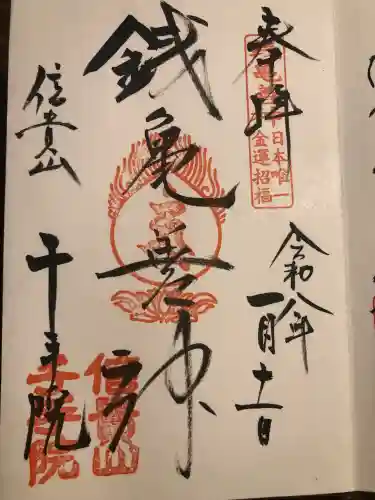 奉拝
日本唯一
金運招福
令和八年
一月十一日
銭亀善神
信貴山
千手院
信貴山
千手院